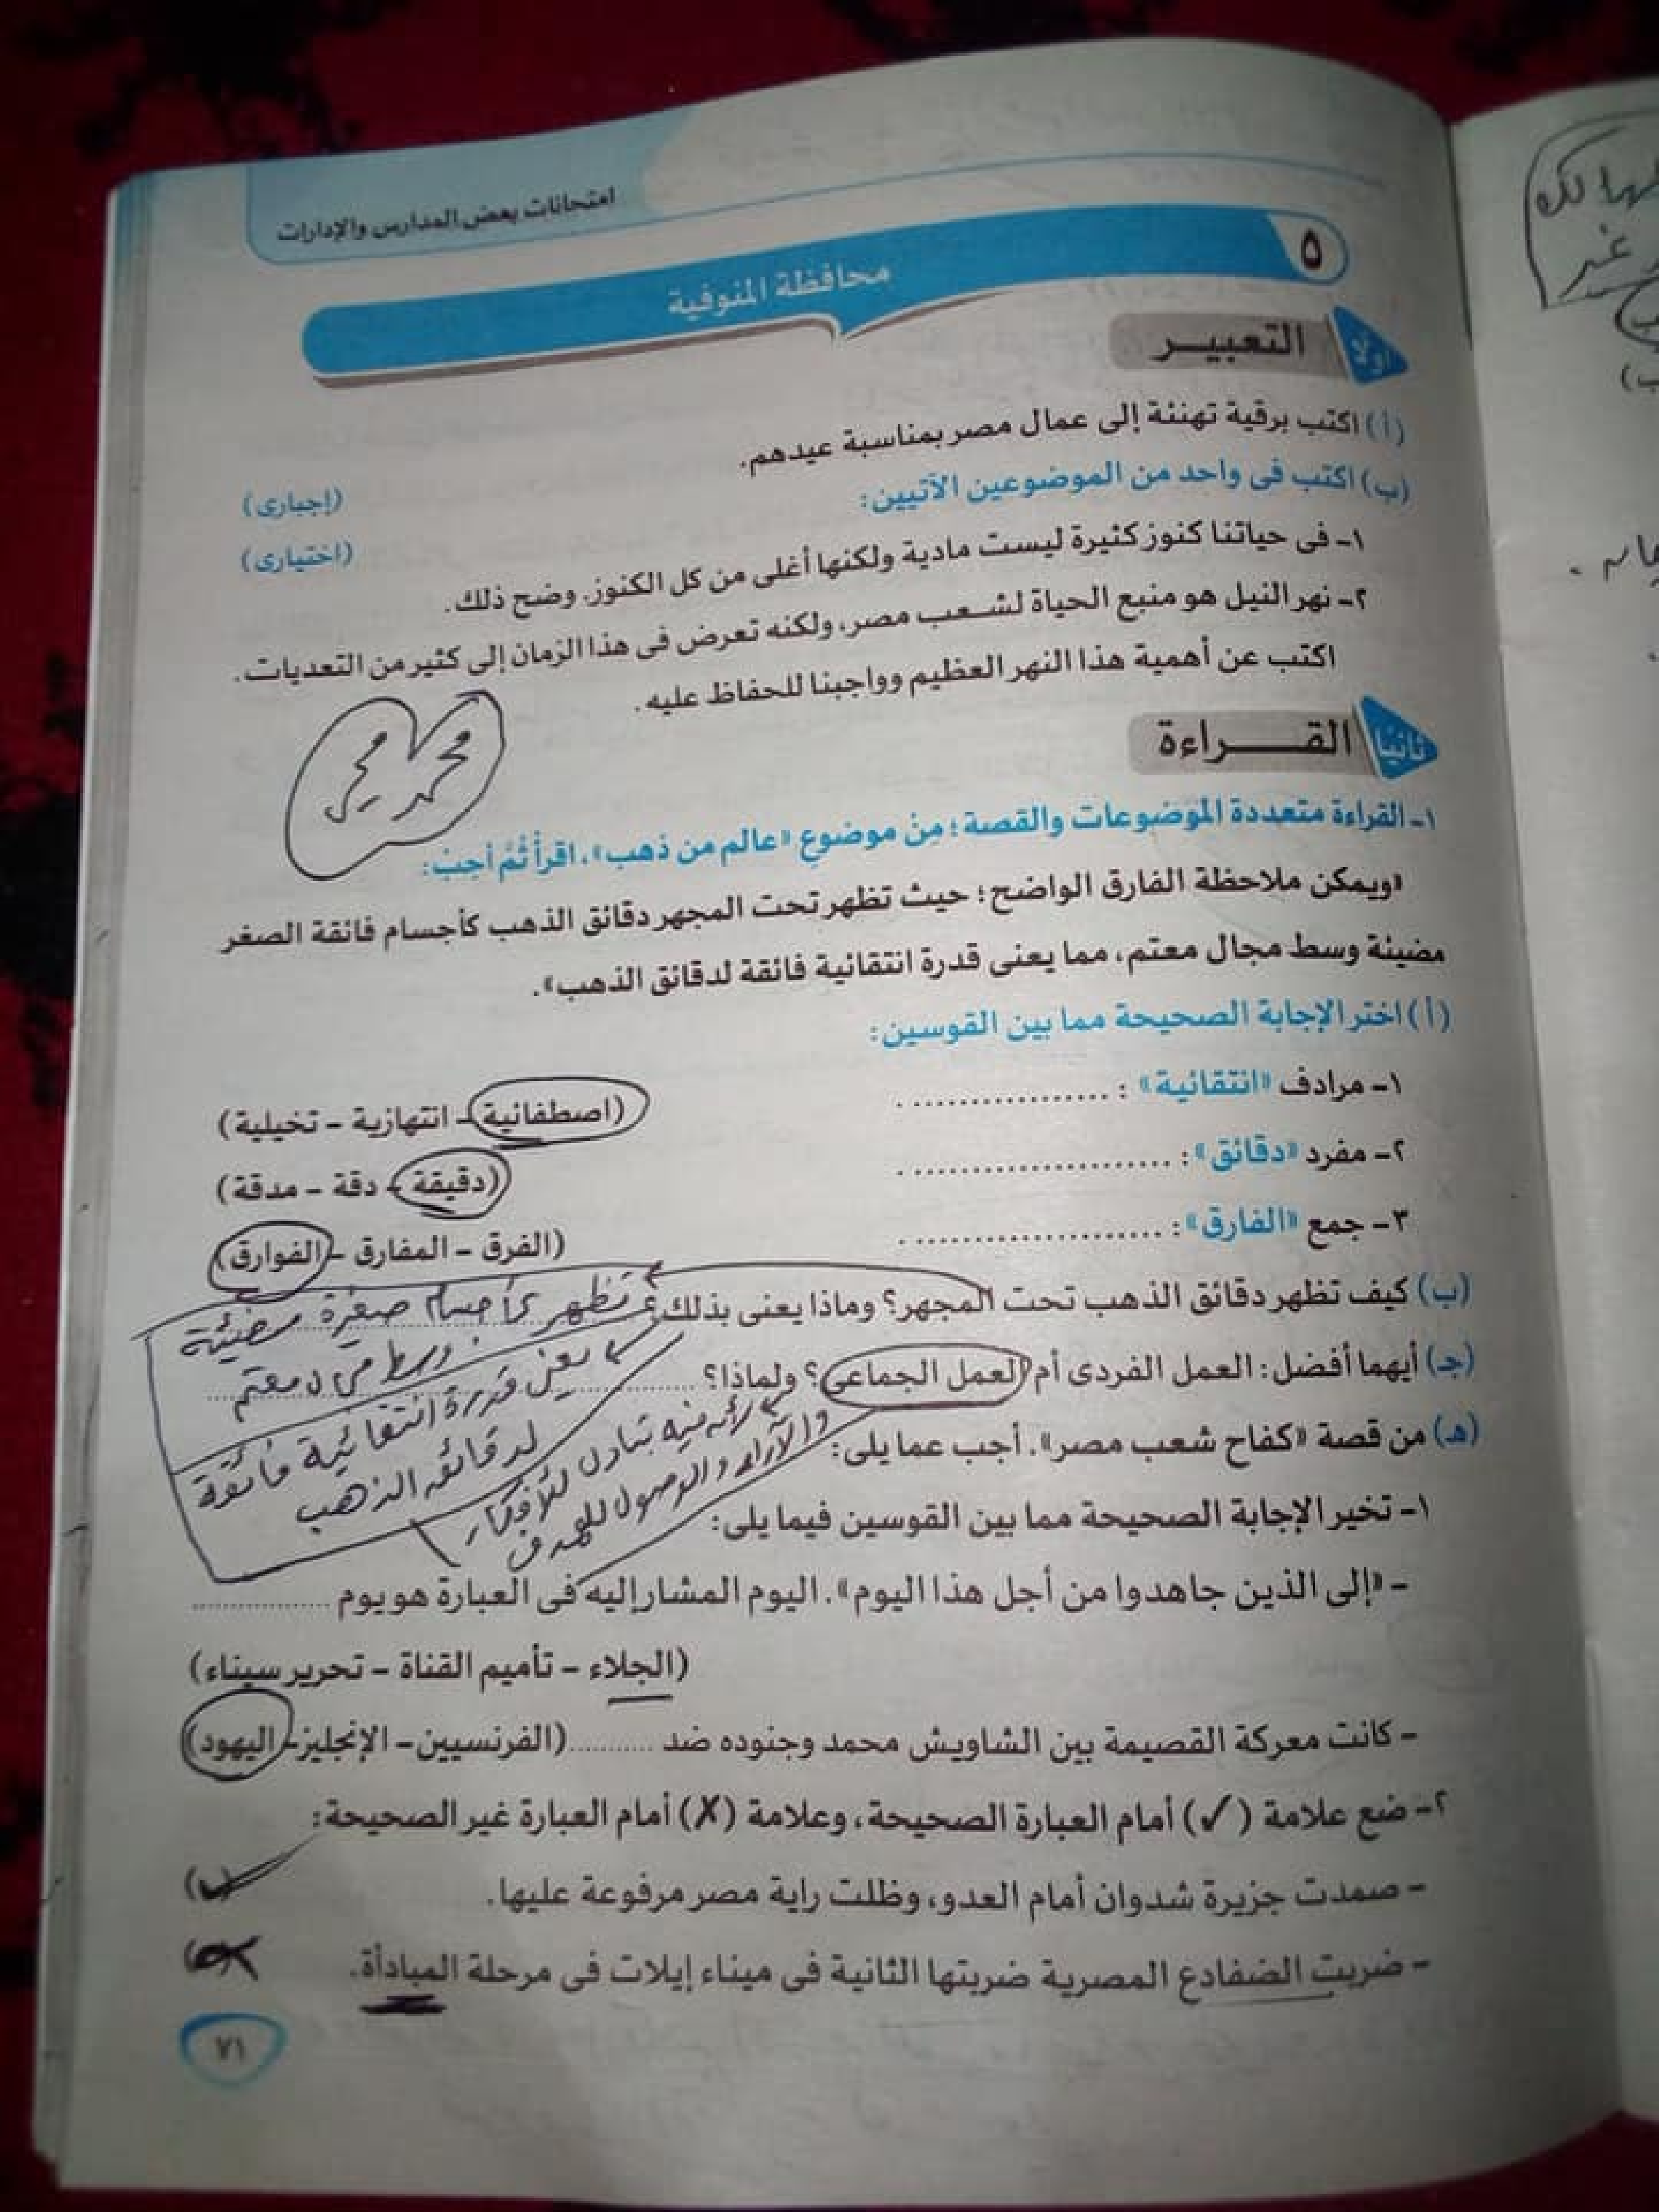 امتحانات بعض المدارس والإدارات
٥
محافظة المنوفية
أولاً التعبير
(أ) اكتب برقية تهنئة إلى عمال مصر بمناسبة عيدهم.
(إجبارى)
(ب) اكتب فى واحد من الموضوعين الآتيين:
(اختيارى)
١- فى حياتنا كنوز كثيرة ليست مادية ولكنها أغلى من كل الكنوز. وضح ذلك.
٢- نهر النيل هو منبع الحياة لشعب مصر، ولكنه تعرض فى هذا الزمان إلى كثير من التعديات.
اكتب عن أهمية هذا النهر العظيم وواجبنا للحفاظ عليه.
ثانيًا القراءة
محمد
١- القراءة متعددة الموضوعات والقصة؛ مِنْ موضوع «عالم من ذهب»، اقرأ ثُمَّ أجبْ:
«ويمكن ملاحظة الفارق الواضح؛ حيث تظهر تحت المجهر دقائق الذهب كأجسام فائقة الصغر
مضيئة وسط مجال معتم، مما يعنى قدرة انتقائية فائقة لدقائق الذهب».
(أ) اختر الإجابة الصحيحة مما بين القوسين:
١- مرادف «انتقائية»: .................. . (اصطفائية - انتهازية - تخيلية)
٢- مفرد «دقائق»: ....................... . (دقيقة - دقة - مدقة)
٣- جمع «الفارق»: ..................... . (الفرق - المفارق - الفوارق)
(ب) كيف تظهر دقائق الذهب تحت المجهر؟ وماذا يعنى بذلك؟
تظهر كأجسام صغيرة مضيئة
وسط مجال معتم
يعنى قدرة انتقائية فائقة
لدقائق الذهب
(جـ) أيهما أفضل: العمل الفردى أم العمل الجماعى؟ ولماذا؟
لأنه فيه تبادل للأفكار
والآراء والوصول للهدف
(هـ) من قصة «كفاح شعب مصر». أجب عما يلى:
١- تخير الإجابة الصحيحة مما بين القوسين فيما يلى:
- «إلى الذين جاهدوا من أجل هذا اليوم». اليوم المشار إليه فى العبارة هو يوم ..................
(الجلاء - تأميم القناة - تحرير سيناء)
- كانت معركة القصيمة بين الشاويش محمد وجنوده ضد ........... (الفرنسيين - الإنجليز - اليهود)
٢- ضع علامة (✓) أمام العبارة الصحيحة، وعلامة (✗) أمام العبارة غير الصحيحة:
- صمدت جزيرة شدوان أمام العدو، وظلت راية مصر مرفوعة عليها. (✓)
- ضربت الضفادع المصرية ضربتها الثانية فى ميناء إيلات فى مرحلة المبادأة. (✗)
٧١